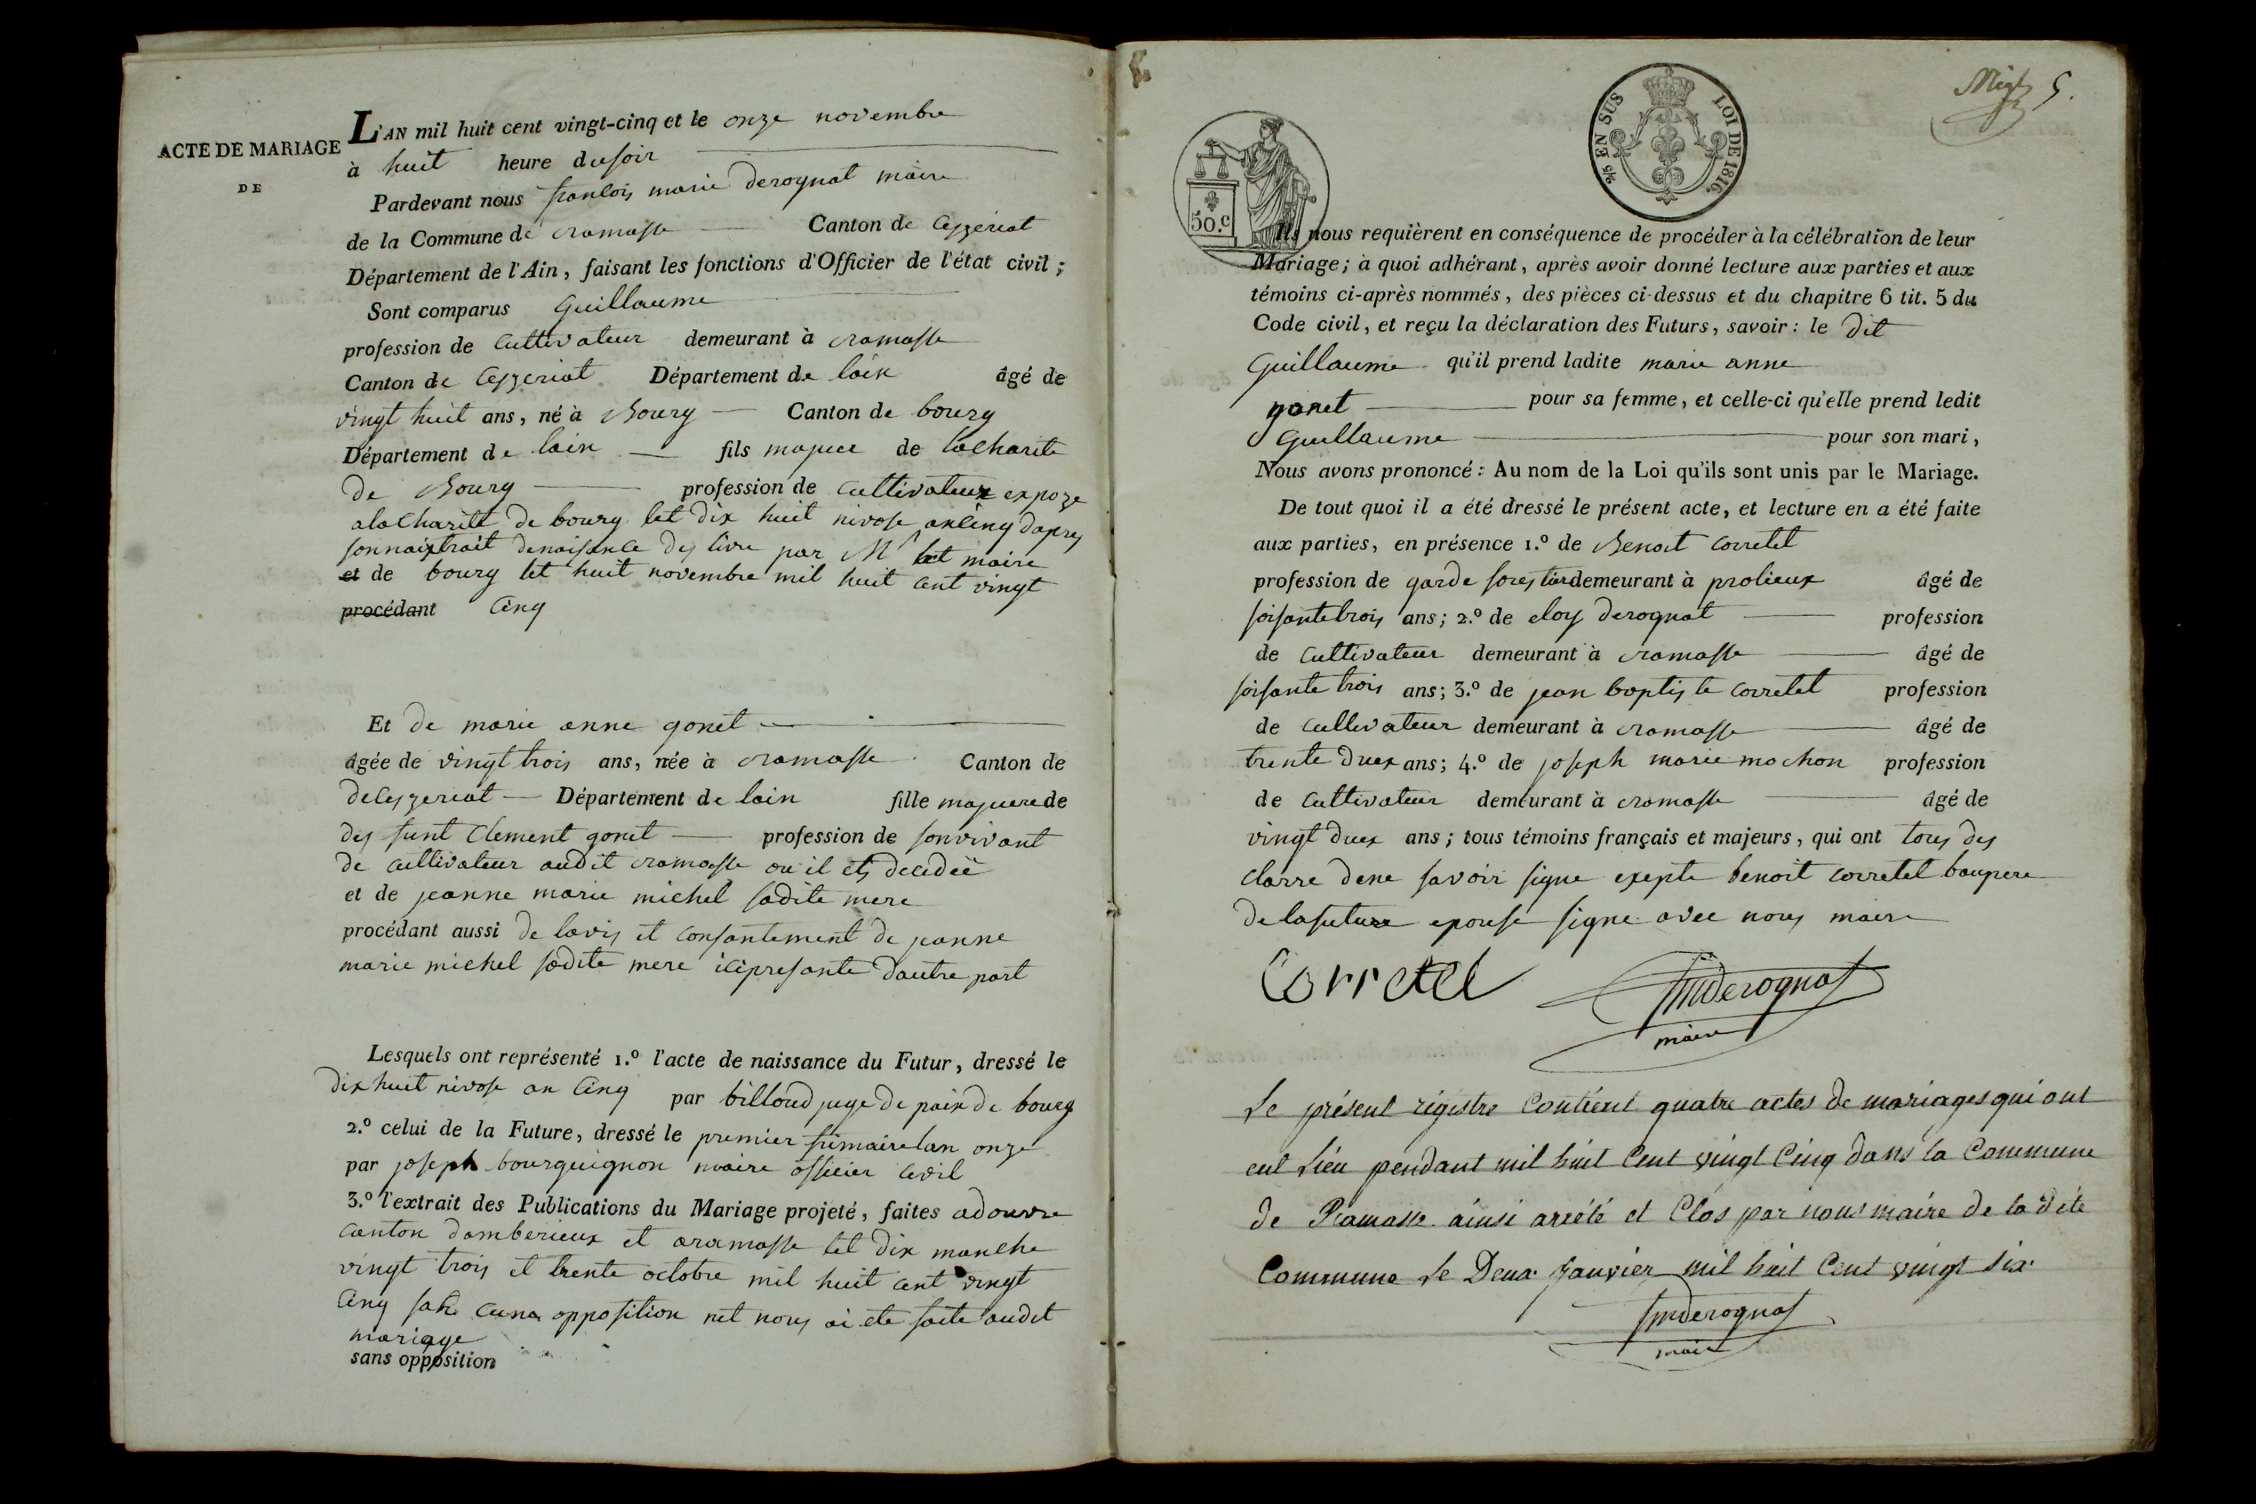 ACTE DE MARIAGE
DE
L'AN mil huit cent vingt-cinq et le onze novembre
à huit heure du soir
Pardevant nous francois marie derognat maire
de la Commune de ramasse Canton de Ceyzeriat
Département de l'Ain, faisant les fonctions d'Officier de l'état civil;
Sont comparus Guillaume
profession de Cultivateur demeurant à ramasse
Canton de Ceyzeriat Département de lain âgé de
vingt huit ans, né à Bourg Canton de bourg
Département de lain fils majeur de la Charite
de Bourg profession de Cultivateur expoze
a la Charité de bourg let dix huit nivose an Cinq dapres
son naixtrait denaisance des livre par Mr let maire
et de bourg let huit novembre mil huit cent vingt
procédant Cinq
Et de marie anne gonet
âgée de vingt trois ans, née à ramasse Canton de
de Ceyzeriat Département de lain fille majeure de
des funt Clement gonet profession de sonvivant
de Cultivateur audit ramasse ou il ets decedéé
et de jeanne marie michel sadite mere
procédant aussi de lavis et consantement de jeanne
marie michel sadite mere icipresante dautre part
Lesquels ont représenté 1.º l'acte de naissance du Futur, dressé le
dix huit nivose an Cinq par billoud juge de paix de bourg
2.º celui de la Future, dressé le premier frimaire lan onze
par joseph bourguignon maire officier Civil
3.º l'extrait des Publications du Mariage projeté, faites adouvre
canton damberieux et aramasse let dix manche
vingt trois et trente octobre mil huit cent vingt
Cinq opposition net nous ai ete faite audit
mariage
sans opposition
5.
50.c
2/5 EN SUS LOI DE 1816.
Ils nous requièrent en conséquence de procéder à la célébration de leur
Mariage; à quoi adhérant, après avoir donné lecture aux parties et aux
témoins ci-après nommés, des pièces ci-dessus et du chapitre 6 tit. 5 du
Code civil, et reçu la déclaration des Futurs, savoir: le dit
Guillaume qu'il prend ladite marie anne
gonet pour sa femme, et celle-ci qu'elle prend ledit
Guillaume pour son mari,
Nous avons prononcé: Au nom de la Loi qu'ils sont unis par le Mariage.
De tout quoi il a été dressé le présent acte, et lecture en a été faite
aux parties, en présence 1.º de Benoit Corretel
profession de garde forestier demeurant à prolieux âgé de
soisante trois ans; 2.º de eloy derognat profession
de Cultivateur demeurant à ramasse âgé de
soisante trois ans; 3.º de jean baptiste Corretel profession
de Cultivateur demeurant à ramasse âgé de
trente duex ans; 4.º de joseph marie mochon profession
de Cultivateur demeurant à ramasse âgé de
vingt duex ans; tous témoins français et majeurs, qui ont tous des
clarre dene savoir signe exepte benoit Corretel baupere
de lafuture epouse signe avec nous maire
Corretel fmderognat
maire
Le présent régistre Contient quatre actes de mariages qui ont
eut Lieu pendant mil huit Cent vingt Cinq dans la Commune
de Ramasse ainsi arrété et Clos par nous maire de la dite
Commune Le Deux Janvier mil huit Cent vingt Six
fmderognat
maire